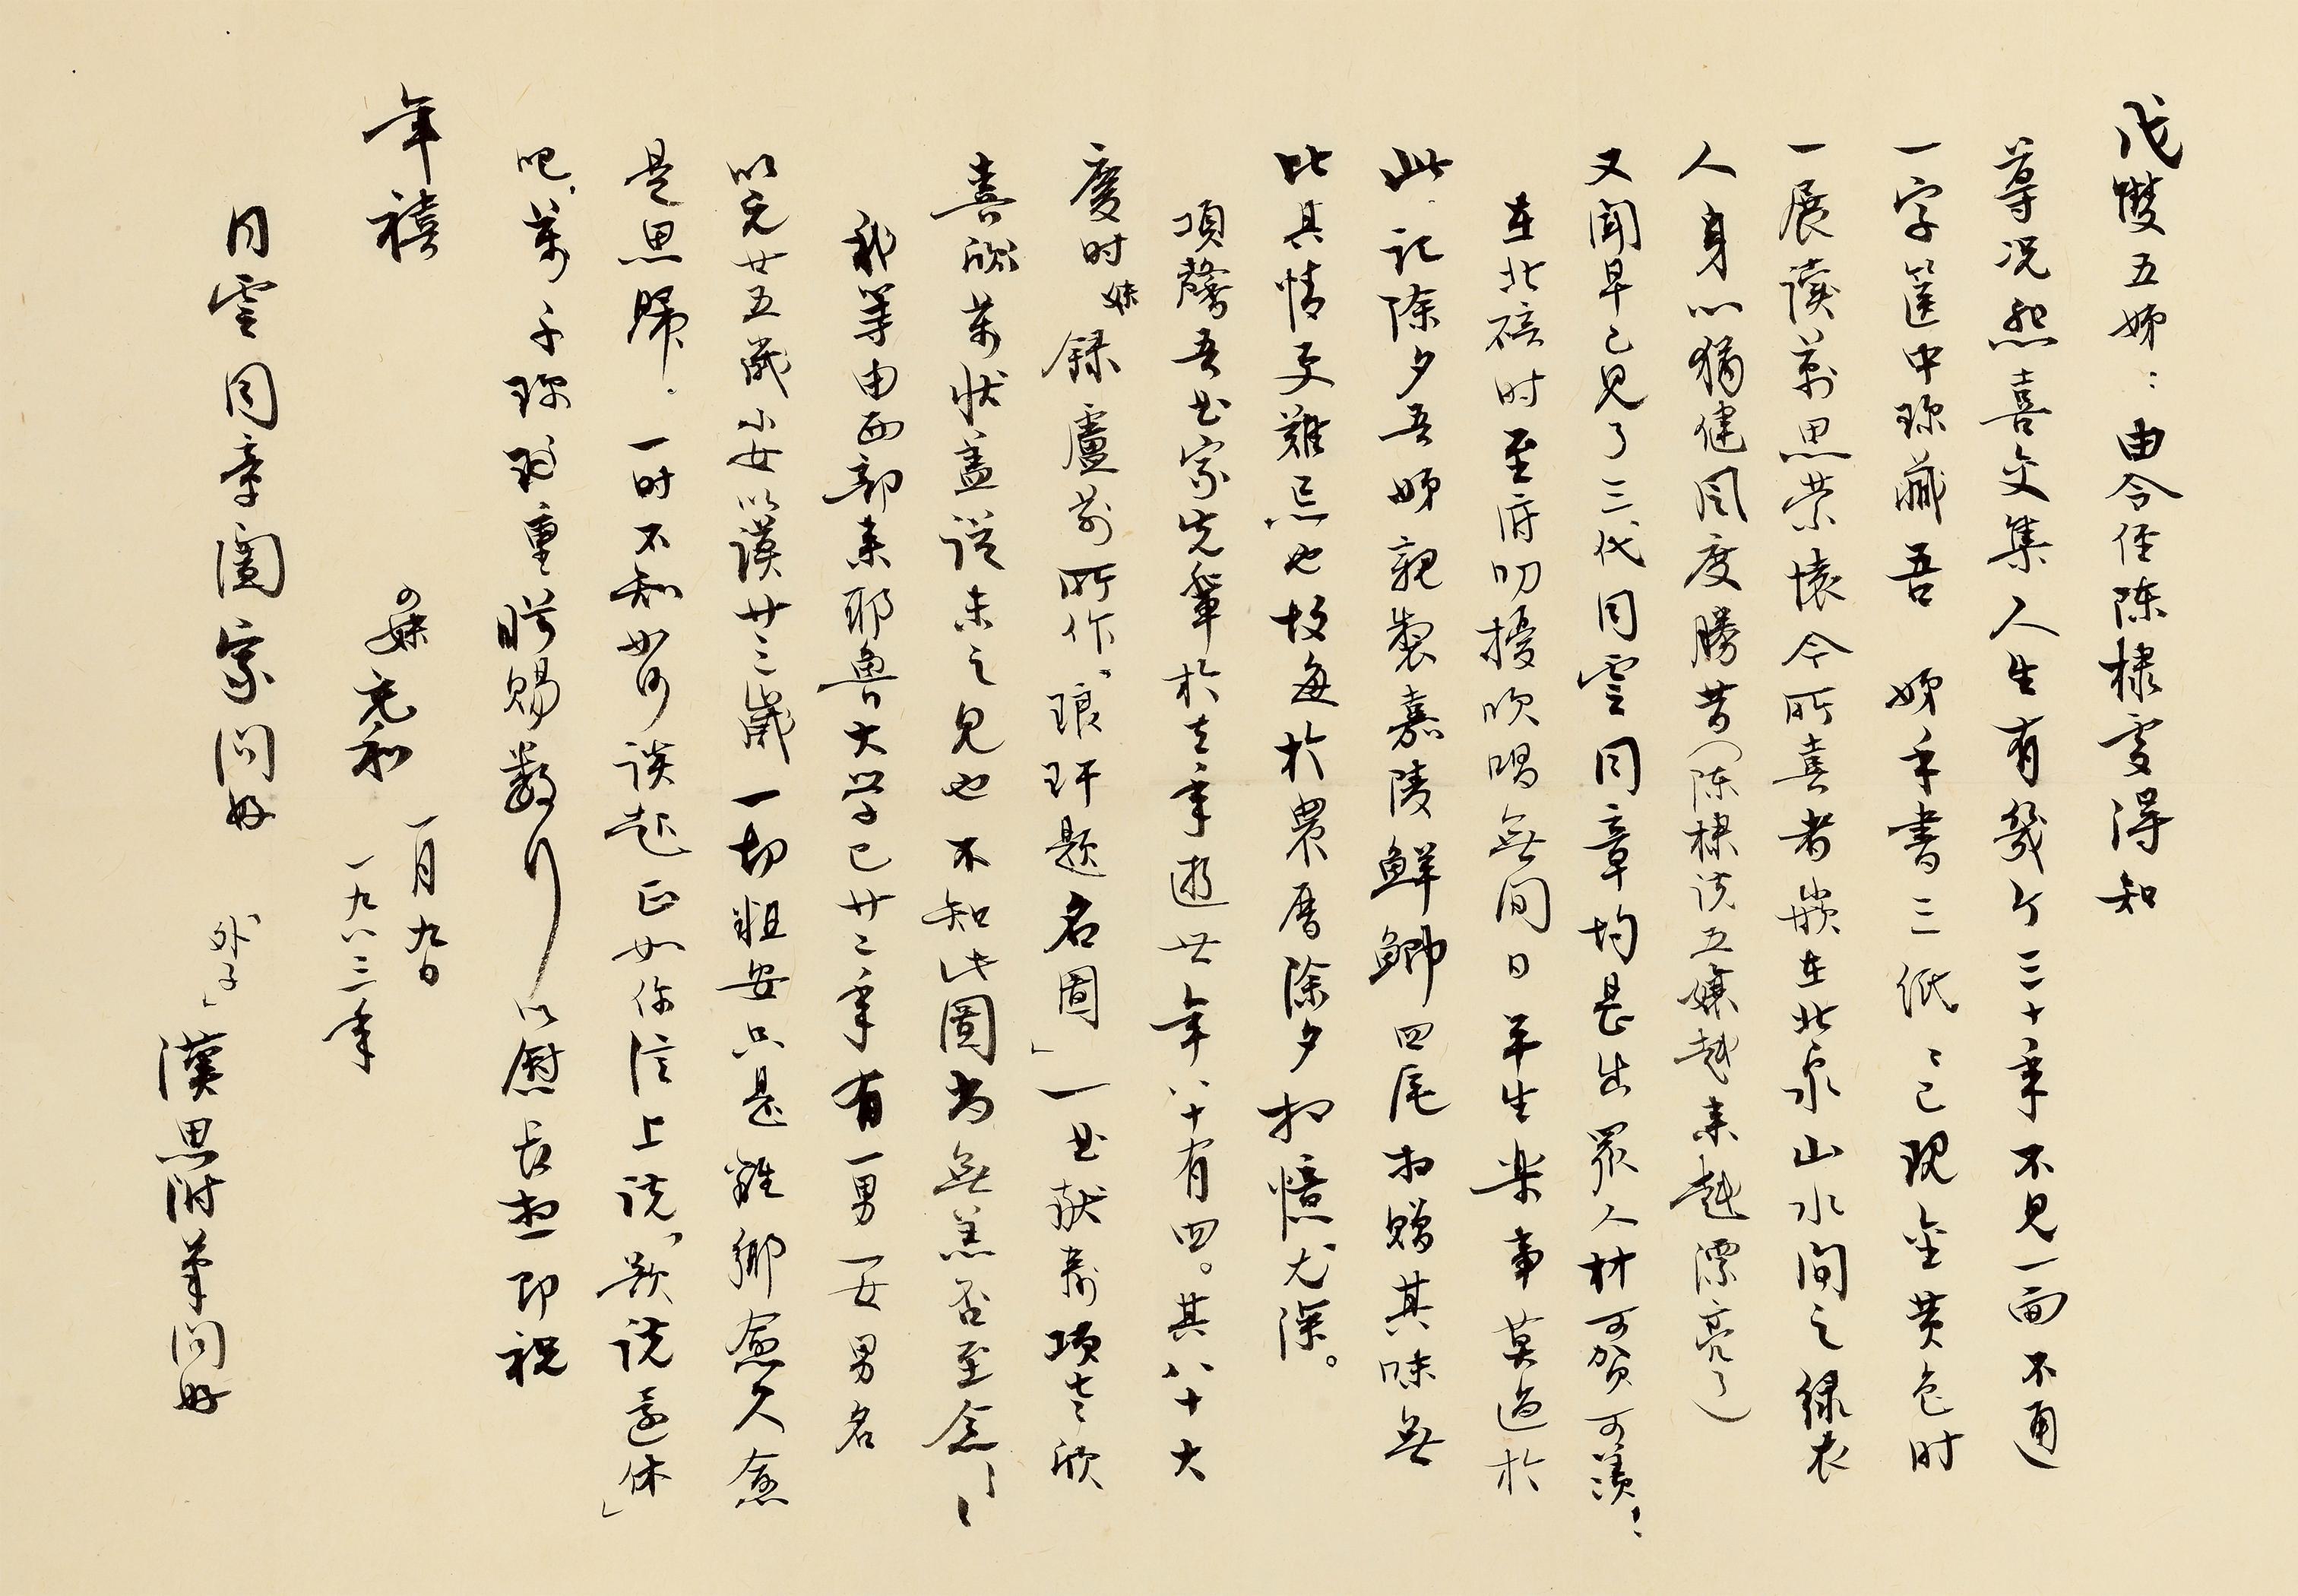 戊双五姊：由令侄陈棣雯得知
尊况悲喜交集人生有几个三十年不见一面不通
一字箧中珍藏吾 姊手书三纸纸已现金黄色时
一展读万思萦怀今所喜者旅在北泉山水间之绿衣
人身心犹健风度胜昔（陈棣说五孃越来越漂亮了）
又闻早已见了三代同云同章均是出众人材可贺可羡！
在北碚时至府叨扰吹唱无间日平生乐事莫过于
此记除夕吾姊亲制嘉陵鲜鲫四尾相赠其味无
比其情更难忘也故每于农历除夕相忆尤深。
项馨吾曲家先辈于去年逝世年八十有四。其八十大
庆时妹录卢前所作“琅玕题名图”一曲献寿项老欣
喜万状盖从未之见也不知此图尚无恙否至念
我等由西部来耶鲁大学已廿二年有一男一女男名
以元廿五岁小女以谟廿三岁一切粗安只是离乡愈久愈
是思归。一时不知如何谈起正如你信上说“欲说还休”
吧，万千珍重盼赐数行以慰长想即祝
年禧
妹充和
一月九日
一九八三年
同云同章阖家问好
外子汉思附笔问好